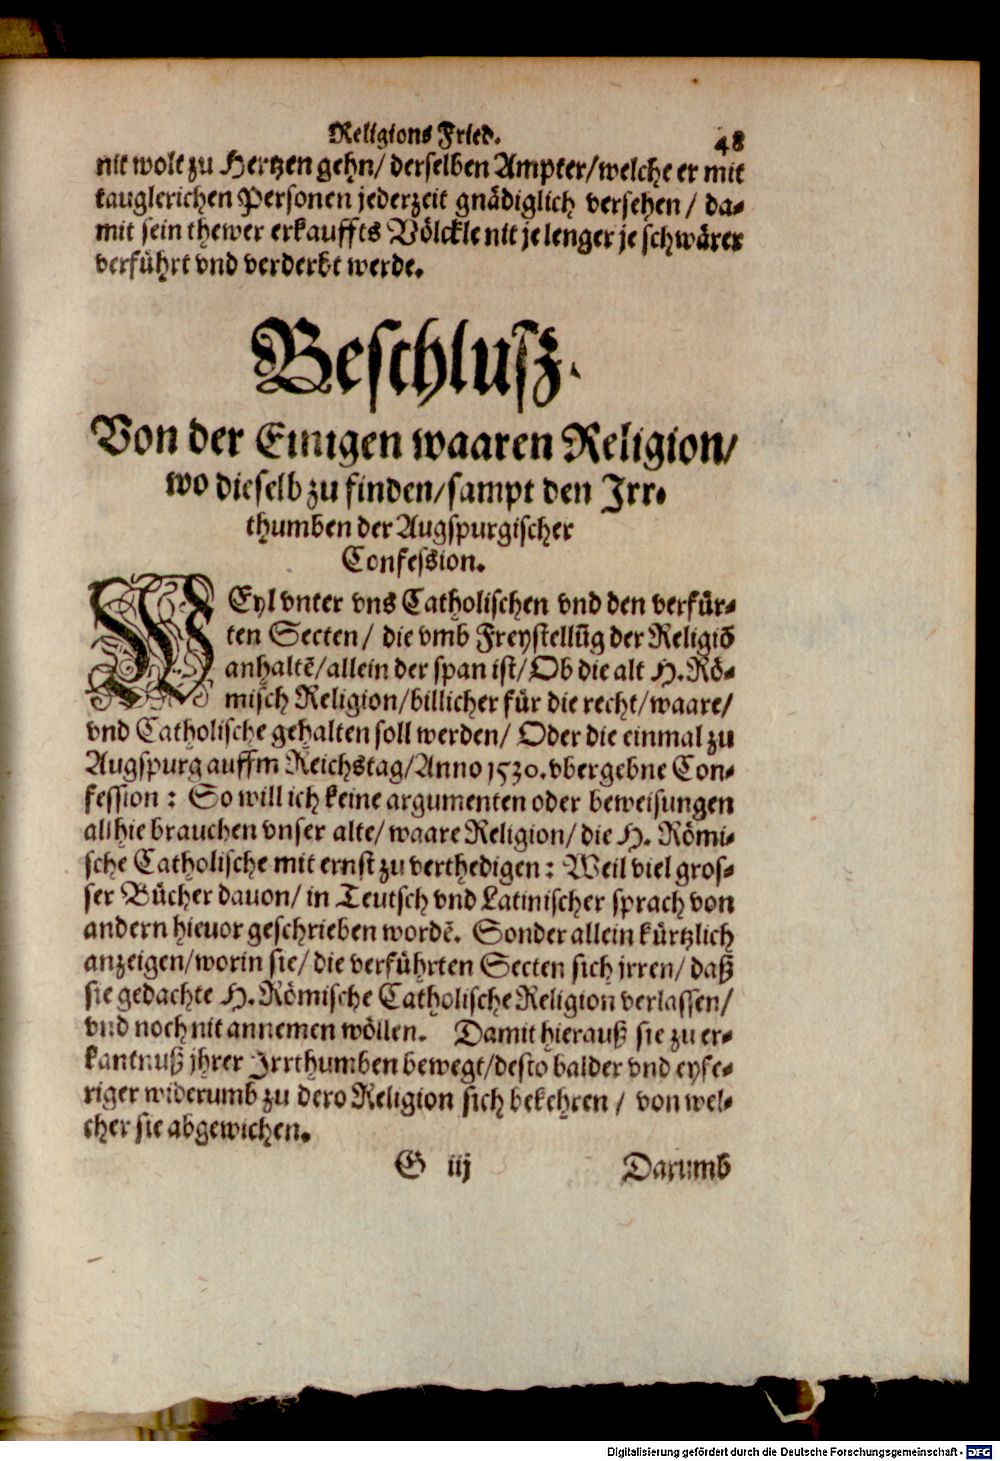 Religions Fried.
48
nit wolt zu Hertzen gehn/ derselben Ampter/ welche er mit
tauglerichen Personen jederzeit gnädiglich versehen/ da-
mit sein thewer erkauffts Völckle nit je lenger je schwärer
verführt vnd verderbt werde.
Beschlusz.
Von der Einigen waaren Religion/
wo dieselb zu finden/ sampt den Irr-
thumben der Augspurgischer
Confession.
WEyl vnter vns Catholischen vnd den verfür-
ten Secten/ die vmb Freystellũg der Religiõ
anhaltẽ/ allein der span ist/ Ob die alt H. Rö-
misch Religion/ billicher für die recht/ waare/
vnd Catholische gehalten soll werden/ Oder die einmal zu
Augspurg auffm Reichstag/ Anno 1530. vbergebne Con-
fession: So will ich keine argumenten oder beweisungen
allhie brauchen vnser alte/ waare Religion/ die H. Römi-
sche Catholische mit ernst zu verthedigen: Weil viel gros-
ser Bücher dauon/ in Teutsch vnd Latinischer sprach von
andern hieuor geschrieben wordẽ. Sonder allein kürtzlich
anzeigen/ worin sie/ die verführten Secten sich jrren/ daß
sie gedachte H. Römische Catholische Religion verlassen/
vnd noch nit annemen wöllen. Damit hierauß sie zu er-
kantnuß jhrer Irrthumben bewegt/ desto balder vnd eyfe-
riger widerumb zu dero Religion sich bekehren/ von wel-
cher sie abgewichen.
G iij
Darumb
Digitalisierung gefördert durch die Deutsche Forschungsgemeinschaft - DFG